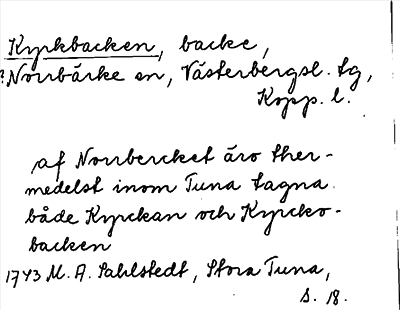 Kyrkbacken, backe,
? Norrbärke sn, Västerbergsl. tg,
Kopp. l.
af Norrbercket äro ther-
medelst inom Tuna tagna
både Kyrckan och Kyrcko-
backen
1743 M. A. Sahlstedt, Stora Tuna,
s. 18.